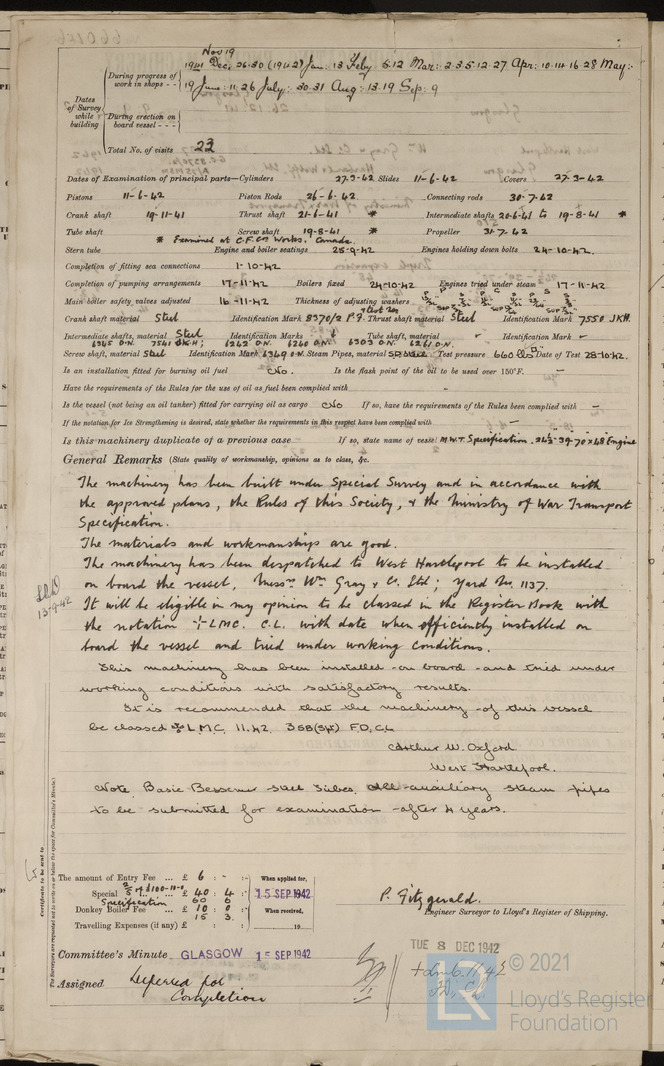 Nov 19
1941 Dec. 26.30 (1942) Jan: 13 Feby 5.12 Mar: 2.3.5.12.27 Apr: 10.14.16.28 May:
During progress of work in shops - - 19 June: 11.26 July: 30.31 Aug: 13.19 Sep: 9
Dates of Survey while building
During erection on board vessel - - -
Total No. of visits 23
Dates of Examination of principal parts—Cylinders 27-3-42 Slides 11-6-42 Covers 27-3-42
Pistons 11-6-42 Piston Rods 26-6-42 Connecting rods 30-7-42
Crank shaft 19-11-41 Thrust shaft 21-6-41 * Intermediate shafts 20-6-41 to 19-8-41 *
Tube shaft Screw shaft 19-8-41 * Propeller 31-7-42
* Examined at C.F.Co Works, Canada.
Stern tube Engine and boiler seatings 25-9-42 Engines holding down bolts 24-10-42.
Completion of fitting sea connections 1-10-42
Completion of pumping arrangements 17-11-42 Boilers fixed 24-10-42 Engines tried under steam 17-11-42
Main boiler safety valves adjusted 16-11-42 Thickness of adjusting washers
Crank shaft material Steel Identification Mark 8370/2 P.F. Thrust shaft material Steel Identification Mark 7550 JKH.
Intermediate shafts, material Steel Identification Marks Tube shaft, material Identification Mark
6345 O.N. 7541 JKH; 6262 O.N. 6260 O.N. 6303 O.N. 6261 O.N.
Screw shaft, material Steel Identification Mark 6349 O.N. Steam Pipes, material SD Steel Test pressure 660 lbs Date of Test 28-10-42.
Is an installation fitted for burning oil fuel No. Is the flash point of the oil to be used over 150°F. —
Have the requirements of the Rules for the use of oil as fuel been complied with
Is the vessel (not being an oil tanker) fitted for carrying oil as cargo No If so, have the requirements of the Rules been complied with —
If the notation for Ice Strengthening is desired, state whether the requirements in this respect have been complied with —
Is this machinery duplicate of a previous case If so, state name of vessel M.W.T. Specification. 24½-39-70 x 48 Engine
General Remarks (State quality of workmanship, opinions as to class, &c.
The machinery has been built under Special Survey and in accordance with
the approved plans, the Rules of this Society, & the Ministry of War Transport
Specification.
The materials and workmanship are good.
The machinery has been despatched to West Hartlepool to be installed
on board the vessel, Messrs Wm Gray & Co. Ltd; Yard No. 1137.
13-9-42
It will be eligible in my opinion to be classed in the Register Book with
the notation + LMC. C.L. with date when efficiently installed on
board the vessel and tried under working conditions.
This machinery has been installed on board and tried under
working conditions with satisfactory results.
It is recommended that the machinery of this vessel
be classed + L.M.C. 11.42. 3SB(Spt) FD, CL
Arthur W. Oxford
West Hartlepool.
Note. Basic Bessemer steel tubes. All auxiliary steam pipes
to be submitted for examination after 4 years.
Certificate to be sent to
The Surveyors are requested not to write on or below the space for Committee's Minute.
The amount of Entry Fee ... £ 6 : - :
Special £ 40 : 4 :
Specification 60 6
Donkey Boiler Fee ... £ 10 : 0 :
15 3
Travelling Expenses (if any) £ : :
When applied for,
15 SEP 1942
When received,
19
P. Fitzgerald.
Engineer Surveyor to Lloyd's Register of Shipping.
Committee's Minute GLASGOW 15 SEP 1942
TUE 8 DEC 1942
Assigned Deferred for
Completion
+ Lmc. 11.42
FD, CL
© 2021
Lloyd's Register
Foundation